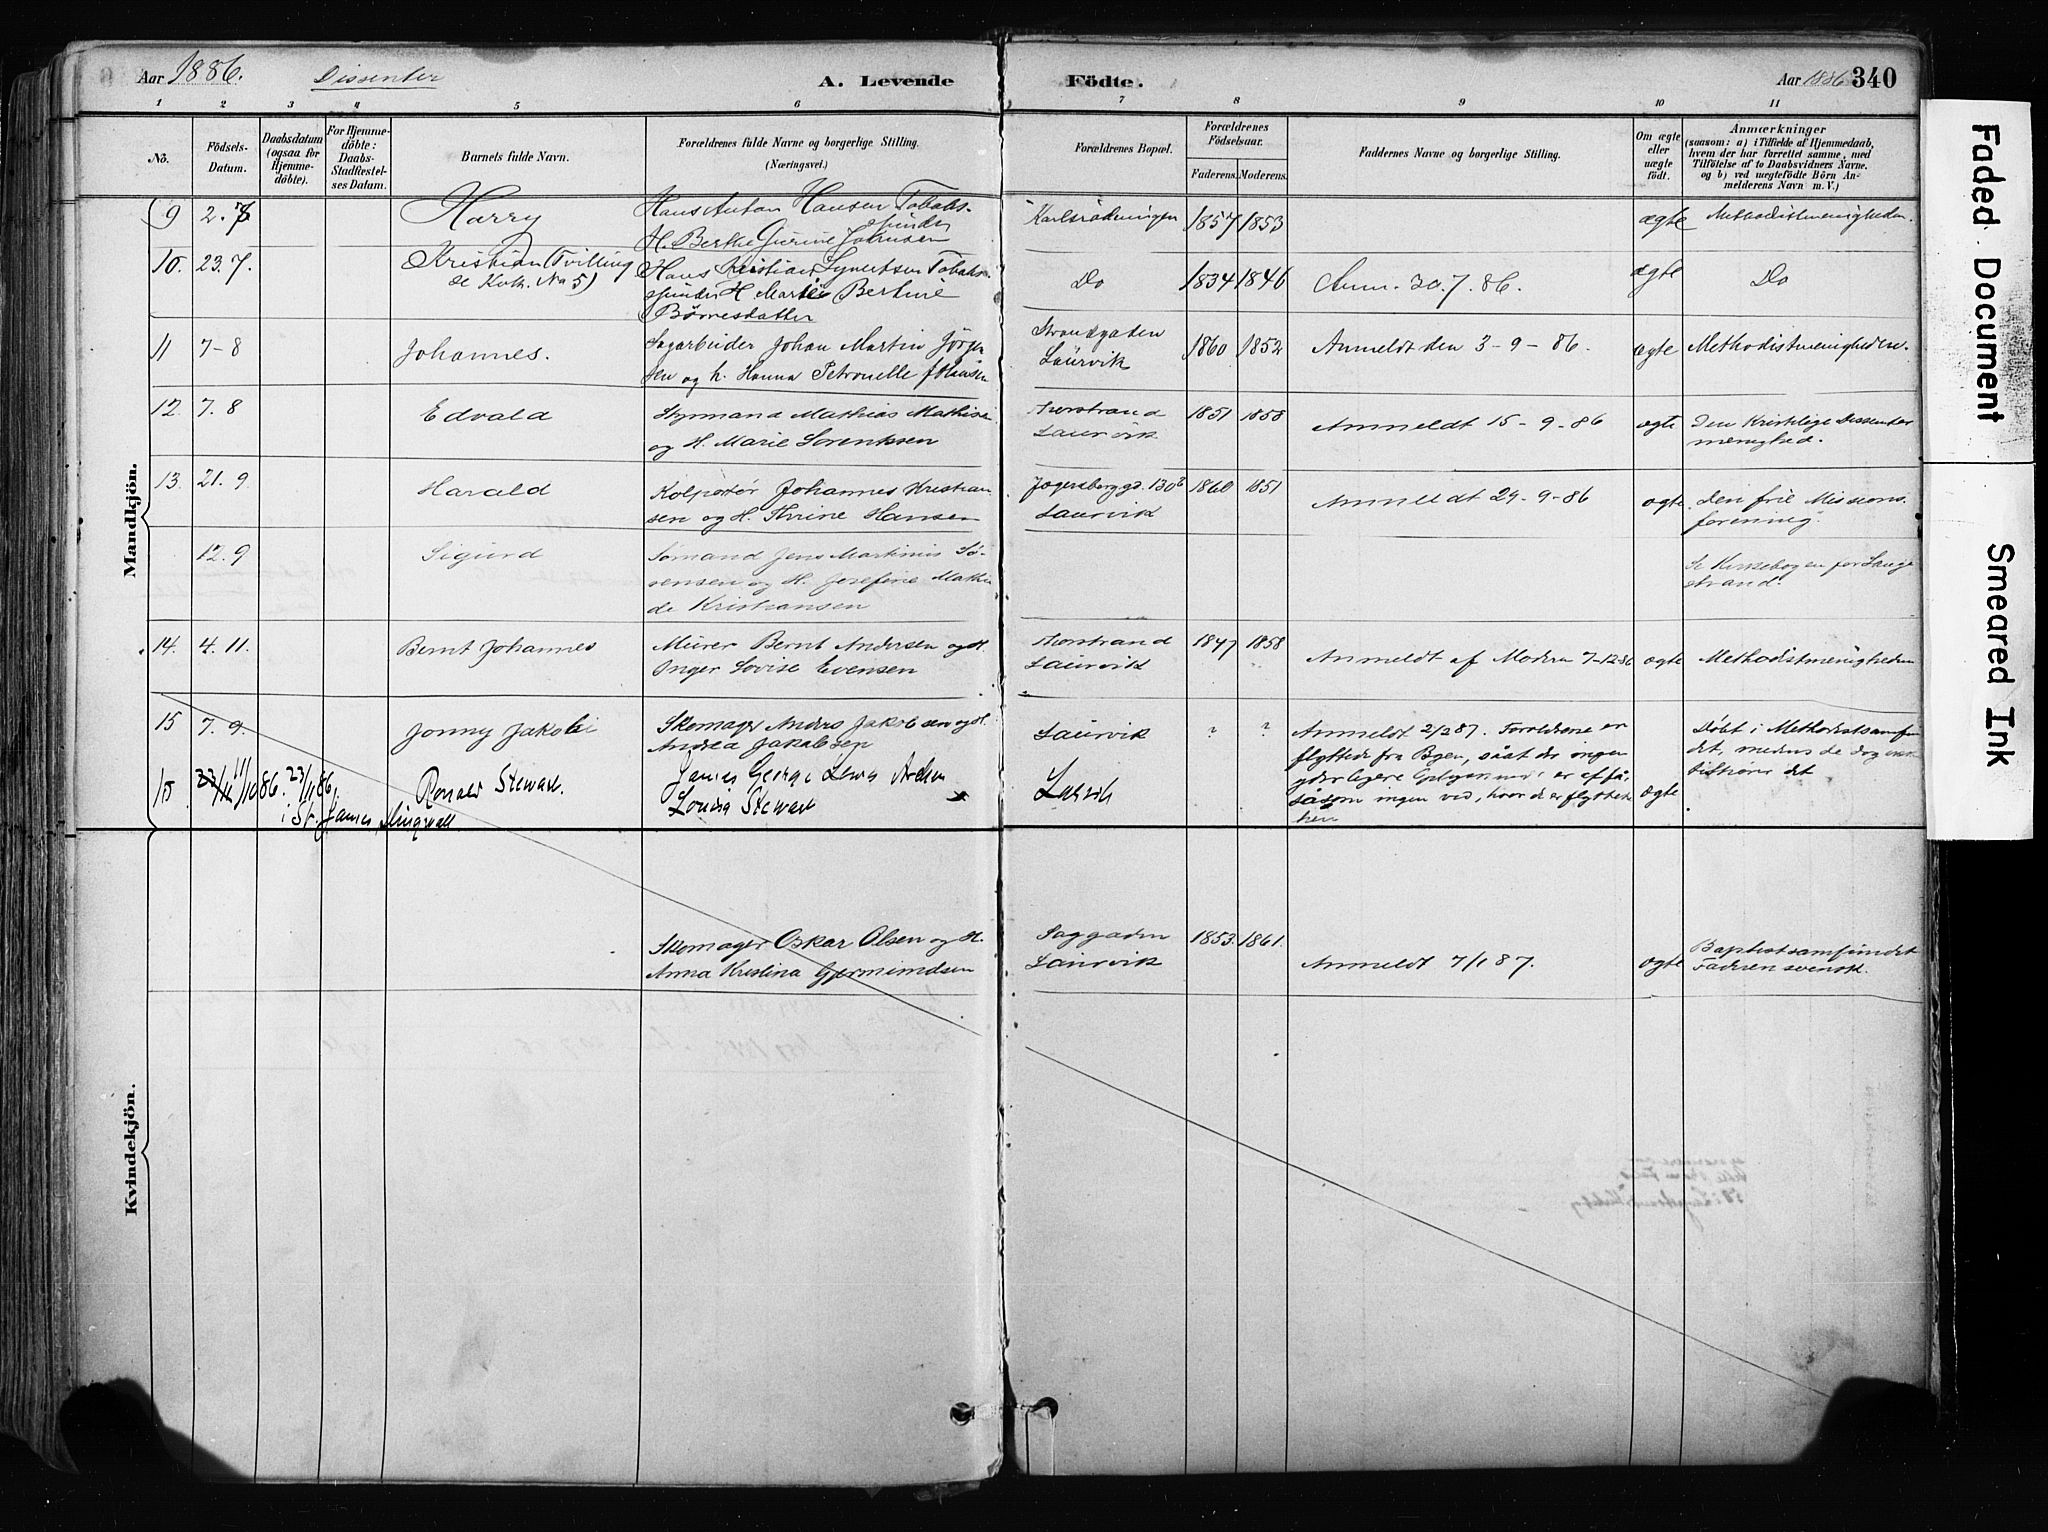 Aar 1886. Dissenter A. Levende Födte. Aar 1886 340
1 2 3 4 5 6 7 8 9 10 11
No. Födsels-Datum. Daabsdatum (ogsaa for Hjemme-döbte). For Hjemme-döbte: Daabs-Stadfæstel-ses Datum. Barnets fulde Navn. Forældrenes fulde Navne og borgerlige Stilling. (Næringsvei.) Forældrenes Bopæl. Forældrenes Födselsaar. Faderens. Moderens. Faddernes Navne og borgerlige Stilling. Om ægte eller uægte födt. Anmærkninger (saasom: a) i Tilfælde af Hjemmedaab, hvem der har forrettet samme, med Tilföielse af to Daabsvidners Navne. og b) ved uægtefödte Börn An-melderens Navn m. V.)
Mandkjön.
9 2. Harry Hans Anton Hansen Tobaks-
spinder
H. Berthe Gurine Karlsrødningen 1857 1853 ægte Methodistmenigheden.
10. 23.7. Kristian (Tvilling
se Kvk. No 5) Hans Kristian Tobaks-
spinder H. Marte Bertine
Børresdatter Do 1834 1846 Anm. 30.7.86. ægte Do
11 7-8 Johannes. Sagarbeider Johan Martin Jörgen
sen og h. Hanna Petronelle f Hansen Strandgaden
Laurvik 1860 1852 Anmeldt den 3-9-86. ægte Methodistmenigheden.
12. 7.8 Edvald Styrmand Mathias Mathisen
og H. Marie Sorentsen Torstrand
Laurvik 1851 1858 Anmeldt 15-9-86 ægte Den Kristelige Dissenter
menighed.
13. 21.9. Harald Kolportør Johannes Kristian
sen og H. Hansen Jegersborggd. 130
Laurvik 1860 1851 Anmeldt 29-9-86 ægte Den frie Missions
forening.
12.9 Sigurd Sømand Jens Martinius Sø-
rensen og H. Josefine Mathil
de Kristiansen Se Kirkebogen for Lange
strand.
14. 4.11. Bernt Johannes Murer Bernt Andersen og H.
Inger Lovise Evensen Torstrand
Laurvik 1847 1858 Anmeldt af Modern 7-12-86 ægte Methodistmenigheden
15 7.9. Jonny Jakobi Skomager Anders Jakobsen og H.
Andrea Jakobsen Laurvik ? ? Anmeldt 2/2 87. Foreldrene er
flyttede fra Byen, såat der ingen
yderligere er at få
såsom ingen ved, hvor de er flyttede
hen ægte Døbt i Methodistsamfun
det, medens de dog
det
11/10 86. 23/11 86. Ronald Stewart. James George Lewis
Louisa Stewart Larvik
i St. James,
Kvindekjön.
Skomager Oskar Olsen og H.
Anna Kristina Germundsen Saggaden
Laurvik 1853. 1861. Anmeldt 7/1 87. ægte Baptistsamfundet
Faderen svensk.
Faded Document
Smeared Ink